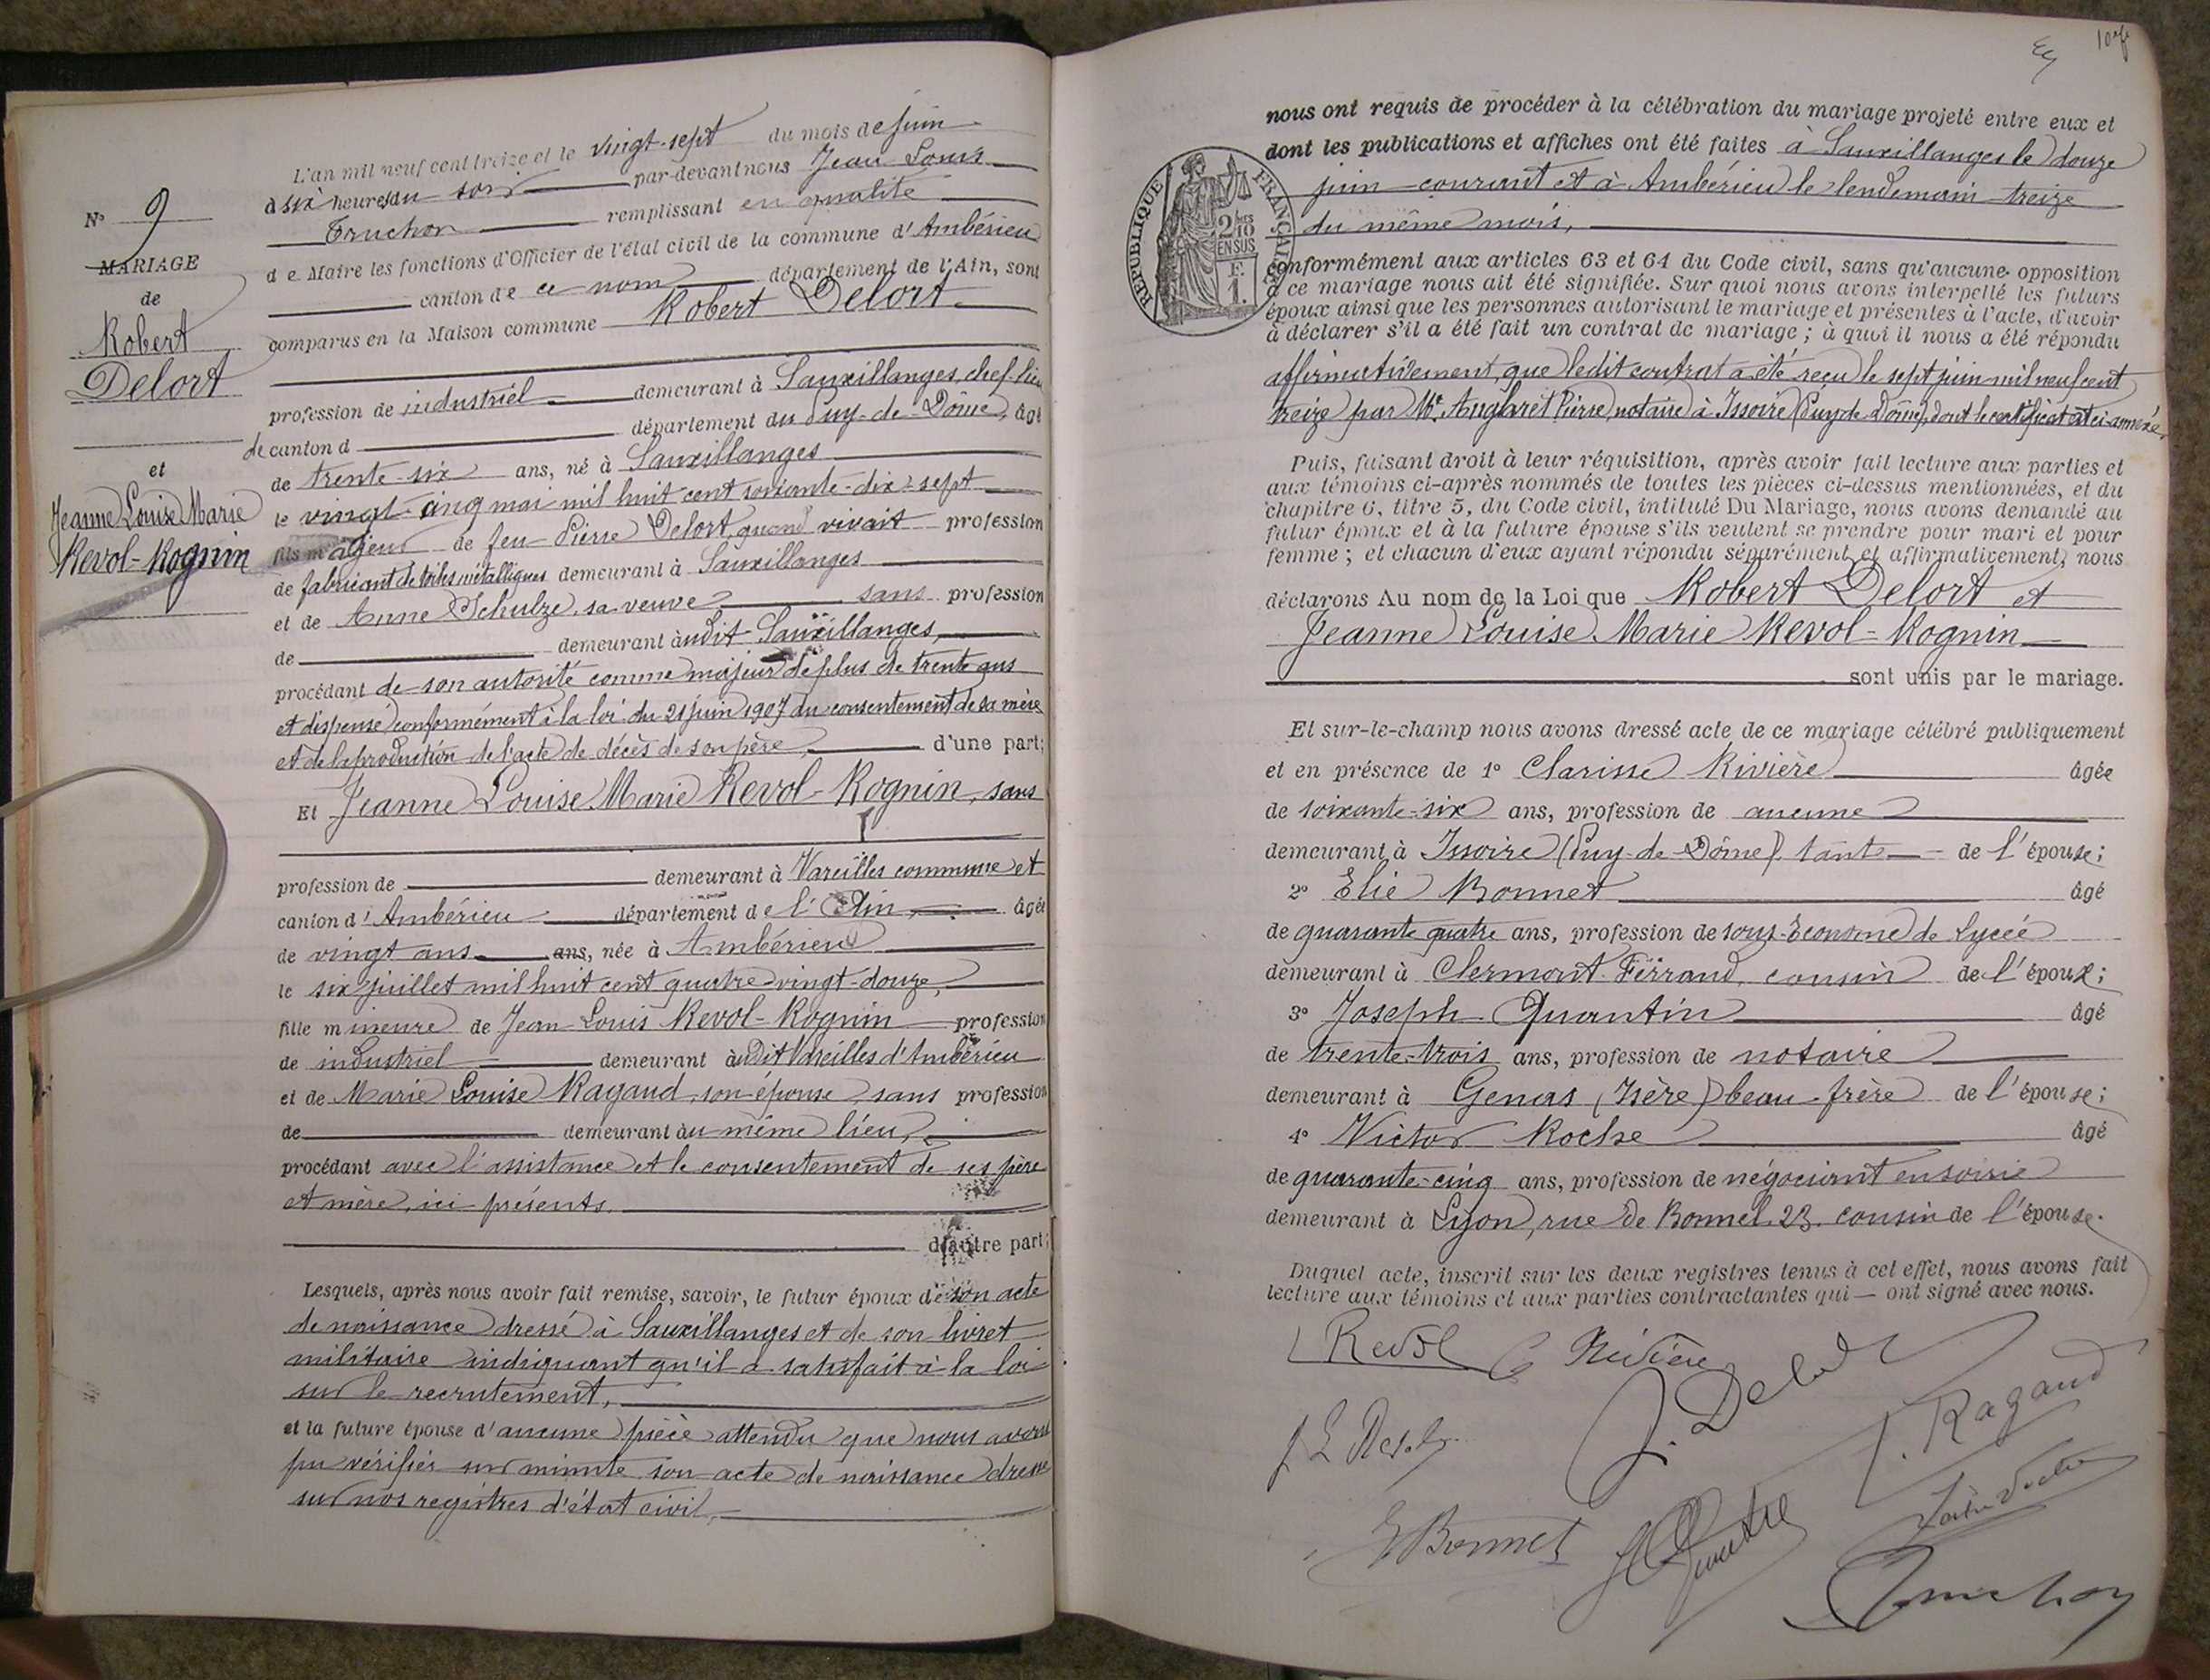 N° 9
MARIAGE
de
Robert
Delort
et
Jeanne Louise Marie
Revol-Rognin
L'an mil neuf cent treize et le vingt-sept du mois de juin
à six heures du soir par-devant nous Jean Louis
Truchon remplissant en qualité
de Maire les fonctions d'Officier de l'état civil de la commune d'Ambérieu
canton de ce nom département de l'Ain, sont
comparus en la Maison commune Robert Delort
profession de industriel demeurant à Sauxillanges, chef-lieu
de canton d département du Puy-de-Dôme, âgé
de trente-six ans, né à Sauxillanges
le vingt-cinq mai mil huit cent soixante-dix-sept
fils majeur de feu Pierre Delort, quand vivait profession
de fabricant de toiles métalliques demeurant à Sauxillanges
et de Anne Schulze, sa veuve, sans profession
de demeurant audit Sauxillanges,
procédant de son autorité comme majeur de plus de trente ans
et dispensé conformément à la loi du 21 juin 1907 du consentement de sa mère
et de la production de l'acte de décès de son père, d'une part;
Et Jeanne Louise Marie Revol-Rognin, sans
profession de demeurant à Vareilles commune et
canton d'Ambérieu département de l'Ain, âgée
de vingt ans ans, née à Ambérieu
le six juillet mil huit cent quatre-vingt-douze,
fille mineure de Jean Louis Revol-Rognin profession
de industriel demeurant audit Vareilles d'Ambérieu
et de Marie Louise Ragaud, son épouse, sans profession
de demeurant au même lieu,
procédant avec l'assistance et le consentement de ses père
et mère, ici présents.
d'autre part;
Lesquels, après nous avoir fait remise, savoir, le futur époux de son acte
de naissance dressé à Sauxillanges et de son livret
militaire indiquant qu'il a satisfait à la loi
sur le recrutement,
et la future épouse d'aucune pièce attendu que nous avons
pu vérifier sur minute son acte de naissance dressé
sur nos registres d'état civil,
nous ont requis de procéder à la célébration du mariage projeté entre eux et
dont les publications et affiches ont été faites à Sauxillanges le douze
juin courant et à Ambérieu le lendemain treize
du même mois,
RÉPUBLIQUE FRANÇAISE
2/10
EN SUS
F.
1.
conformément aux articles 63 et 64 du Code civil, sans qu'aucune opposition
à ce mariage nous ait été signifiée. Sur quoi nous avons interpellé les futurs
époux ainsi que les personnes autorisant le mariage et présentes à l'acte, d'avoir
à déclarer s'il a été fait un contrat de mariage ; à quoi il nous a été répondu
affirmativement, que ledit contrat a été reçu le sept juin mil neuf cent
treize par Me Anglaret Pierre, notaire à Issoire (Puy de Dôme), dont le certificat est ci-annexé.
Puis, faisant droit à leur réquisition, après avoir fait lecture aux parties et
aux témoins ci-après nommés de toutes les pièces ci-dessus mentionnées, et du
chapitre 6, titre 5, du Code civil, intitulé Du Mariage, nous avons demandé au
futur époux et à la future épouse s'ils veulent se prendre pour mari et pour
femme ; et chacun d'eux ayant répondu séparément et affirmativement, nous
déclarons Au nom de la Loi que Robert Delort et
Jeanne Louise Marie Revol-Rognin
sont unis par le mariage.
Et sur-le-champ nous avons dressé acte de ce mariage célébré publiquement
et en présence de 1° Clarisse Rivière âgée
de soixante-six ans, profession de aucune
demeurant à Issoire (Puy-de-Dôme), tante de l'épouse;
2° Elie Bonnet âgé
de quarante quatre ans, profession de sous-Econome de Lycée
demeurant à Clermont-Ferrand, cousin de l'époux;
3° Joseph Quantin âgé
de trente-trois ans, profession de notaire
demeurant à Genas (Isère) beau-frère de l'épouse;
4° Victor Roche âgé
de quarante-cinq ans, profession de négociant en soirie
demeurant à Lyon, rue de Bonnel, 23. cousin de l'épouse.
Duquel acte, inscrit sur les deux registres tenus à cet effet, nous avons fait
lecture aux témoins et aux parties contractantes qui — ont signé avec nous.
Revol C Rivière
Delort
Ragaud
J L Revol
E Bonnet
Truchon